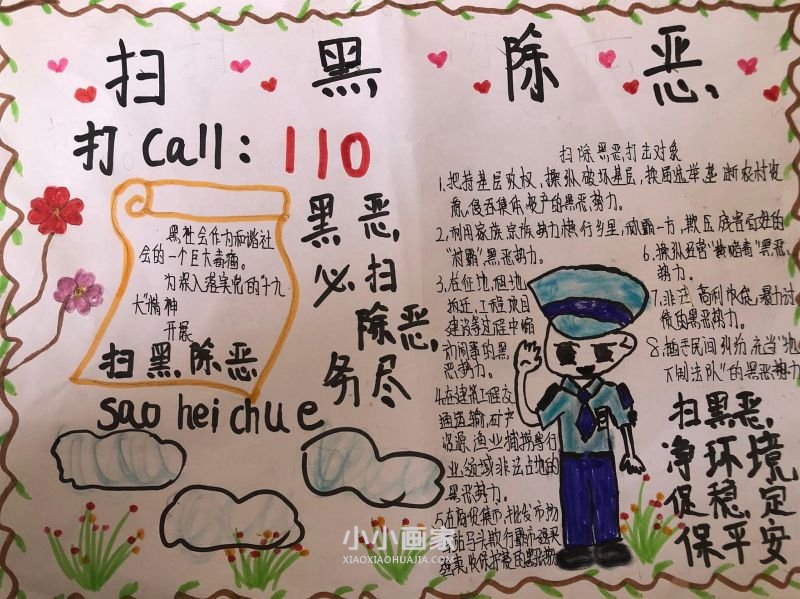 扫 黑 除 恶
打 Call: 110
黑社会作为和谐社
会的一个巨大毒瘤。
为深入落实党的"十九
大"精神
开展
扫黑除恶
sao hei chu e
黑恶
必扫
除恶
务尽
扫除黑恶打击对象
1.把持基层政权,操纵破坏基层,换届选举垄断农村资
源,侵吞集体资产的黑恶势力。
2.利用家族宗族势力横行乡里,称霸一方,欺压残害百姓的
"村霸"黑恶势力。
3.在征地,租地
拆迁,工程项目
建设等过程中煽
动闹事的黑
恶势力。
4.在建筑工程交
通运输,矿产
资源,渔业捕捞等行
业,领域非法占地的
黑恶势力。
5.在商贸集市,批发市场
收保护费的黑恶势
6.操纵经营"黄赌毒"黑恶
势力。
7.非法高利放贷,暴力讨
债的黑恶势力。
8.插手民间纠纷,充当"地
下制法队"的黑恶势力
扫黑恶,
净环境
促稳定
保平安
小小画家
XIAOXIAOHUAJIA.COM